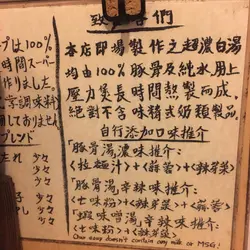 致
們
本店即場製作之超濃白湯
均由100%豚骨及純水,用上
壓力煲長時間熬製而成,
絕對不含味精或奶類製品。
自行添加口味推介:
「豚骨湯,濃味推介:
+<蒜蓉>+<辣芽菜>
「豚骨湯,辛辣味推介:
<七味粉>+<辣芽菜>+<蒜蓉>
「蝦味噌湯,辛辣味推介:
<七味粉>+<辣芽菜>
Our soup doesn't contain any milk or MSG!
プは100%
時間スーパー
作りました。
調味料
ブレンド
少々
少々